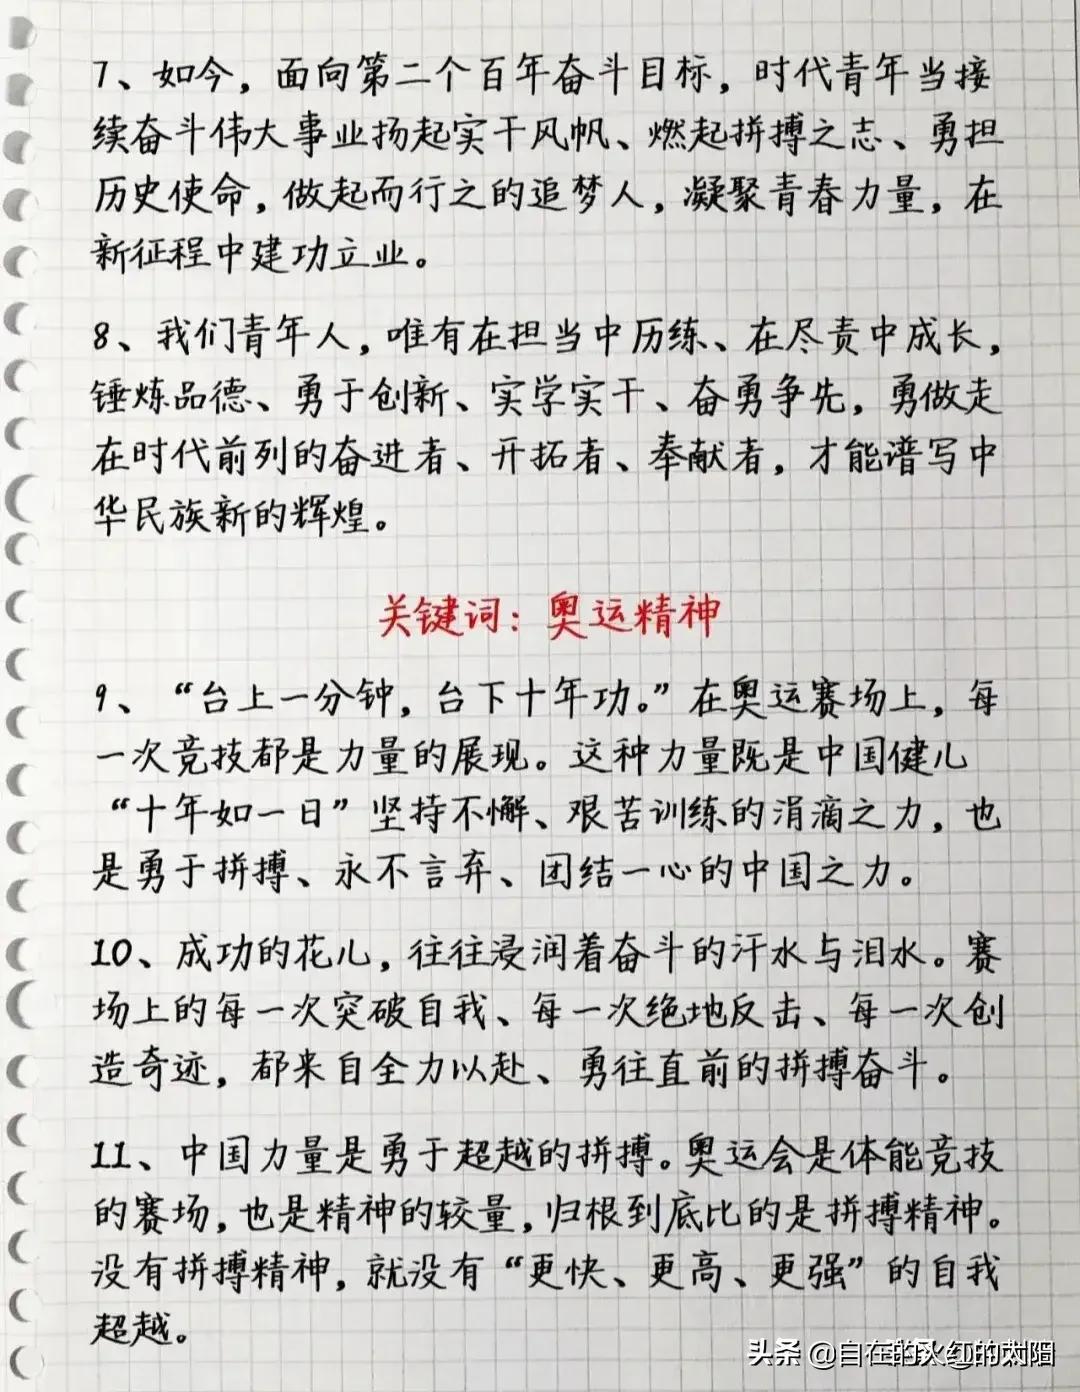 7、如今，面向第二个百年奋斗目标，时代青年当接
续奋斗伟大事业扬起实干风帆、燃起拼搏之志、勇担
历史使命，做起而行之的追梦人，凝聚青春力量，在
新征程中建功立业。
8、我们青年人，唯有在担当中历练、在尽责中成长，
锤炼品德、勇于创新、实学实干、奋勇争先，勇做走
在时代前列的奋进者、开拓者、奉献者，才能谱写中
华民族新的辉煌。
关键词：奥运精神
9、“台上一分钟，台下十年功。”在奥运赛场上，每
一次竞技都是力量的展现。这种力量既是中国健儿
“十年如一日”坚持不懈、艰苦训练的涓滴之力，也
是勇于拼搏、永不言弃、团结一心的中国之力。
10、成功的花儿，往往浸润着奋斗的汗水与泪水。赛
场上的每一次突破自我、每一次绝地反击、每一次创
造奇迹，都来自全力以赴、勇往直前的拼搏奋斗。
11、中国力量是勇于超越的拼搏。奥运会是体能竞技
的赛场，也是精神的较量，归根到底比的是拼搏精神。
没有拼搏精神，就没有“更快、更高、更强”的自我
超越。
头条 @自在的火红的太阳